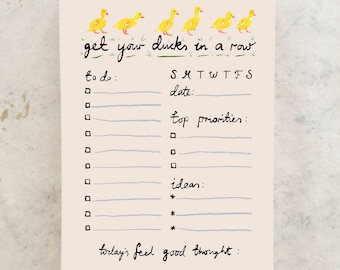 get your ducks in a row
to do:
S M T W T F S
date:
top priorities:
ideas:
today's feel good thought: